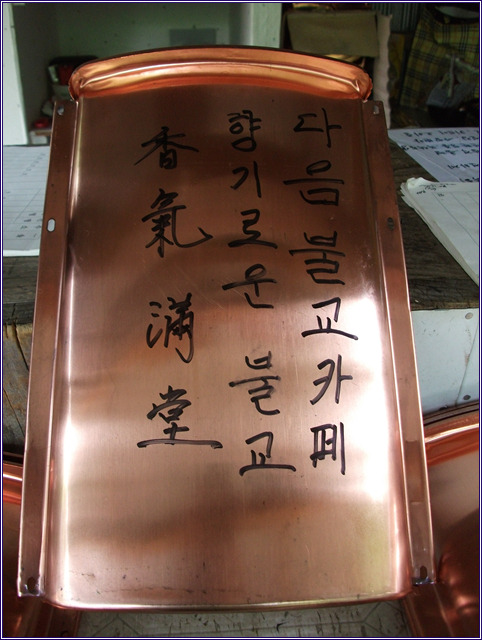 다음불교카페
향기로운 불교
香氣滿堂